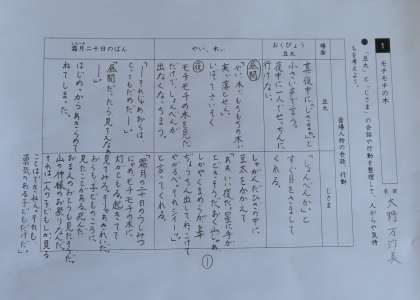 1 モチモチの木
名前
●「豆太」と「じさま」の会話や行動を整理して、人がらや気持ちを考えよう。
場面
登場人物の会話、行動
豆太
じさま
おくびょう豆太
真夜中に「じさまぁ」と
小さい声で言う。
夜中に一人でせっちんに
行けない。
「しょんべんか」と
すぐ目をさまして
くれる。
しゃがんだひざの中に
豆太をかかえて
やい、木ぃ
昼間
「やい、木ぃ、モチモチの木ぃ
実ぃ落とせぇ」
いばってさいそく
夜
モチモチの木を見た
だけで、しょんべんが
出なくなっちまう。
「ああ、いい夜だ。星に手が
とどきそうだ。
やるべぇ。それ、シィーッ」
と言ってくれる。
霜月二十日のばん
「―それじゃぁ、おらは
とってもだめだ―」
「昼間だったら見てえなぁ
―」
はじめっからあきらめて
ねてしまった。
霜月二十日のうしみつ
にゃぁ、モチモチの木に
灯がともる。起きてて
見てみろ。そりゃぁきれいだ。
おらも、子どものころに
見たことがある。死んだ
おまえのおとうも見たそうだ。
山の神様のお祭りなんだ。
それは、一人の子どもしか見る
ことはできねえ。それも
勇気のある子どもだけだ。」
①